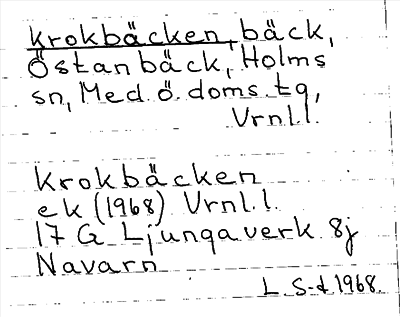 Krokbäcken, bäck,
Östanbäck, Holms
sn, Med. ö. doms. tg,
Vrnl.l.
Krokbäcken
ek (1968) Vrnl.l.
17 G Ljungaverk 8j
Navarn
L. S-d 1968.